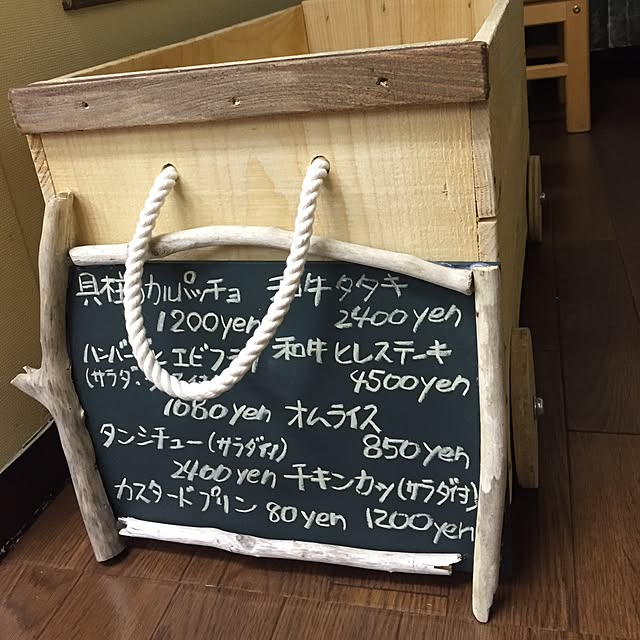 貝柱 カルパッチョ 和牛タタキ
1200yen 2400yen
ハンバーグ エビフライ 和牛ヒレステーキ
(サラダ、 4500yen
1080yen オムライス
タンシチュー(サラダ付) 850yen
2400yen チキンカツ(サラダ付)
カスタードプリン 80yen 1200yen